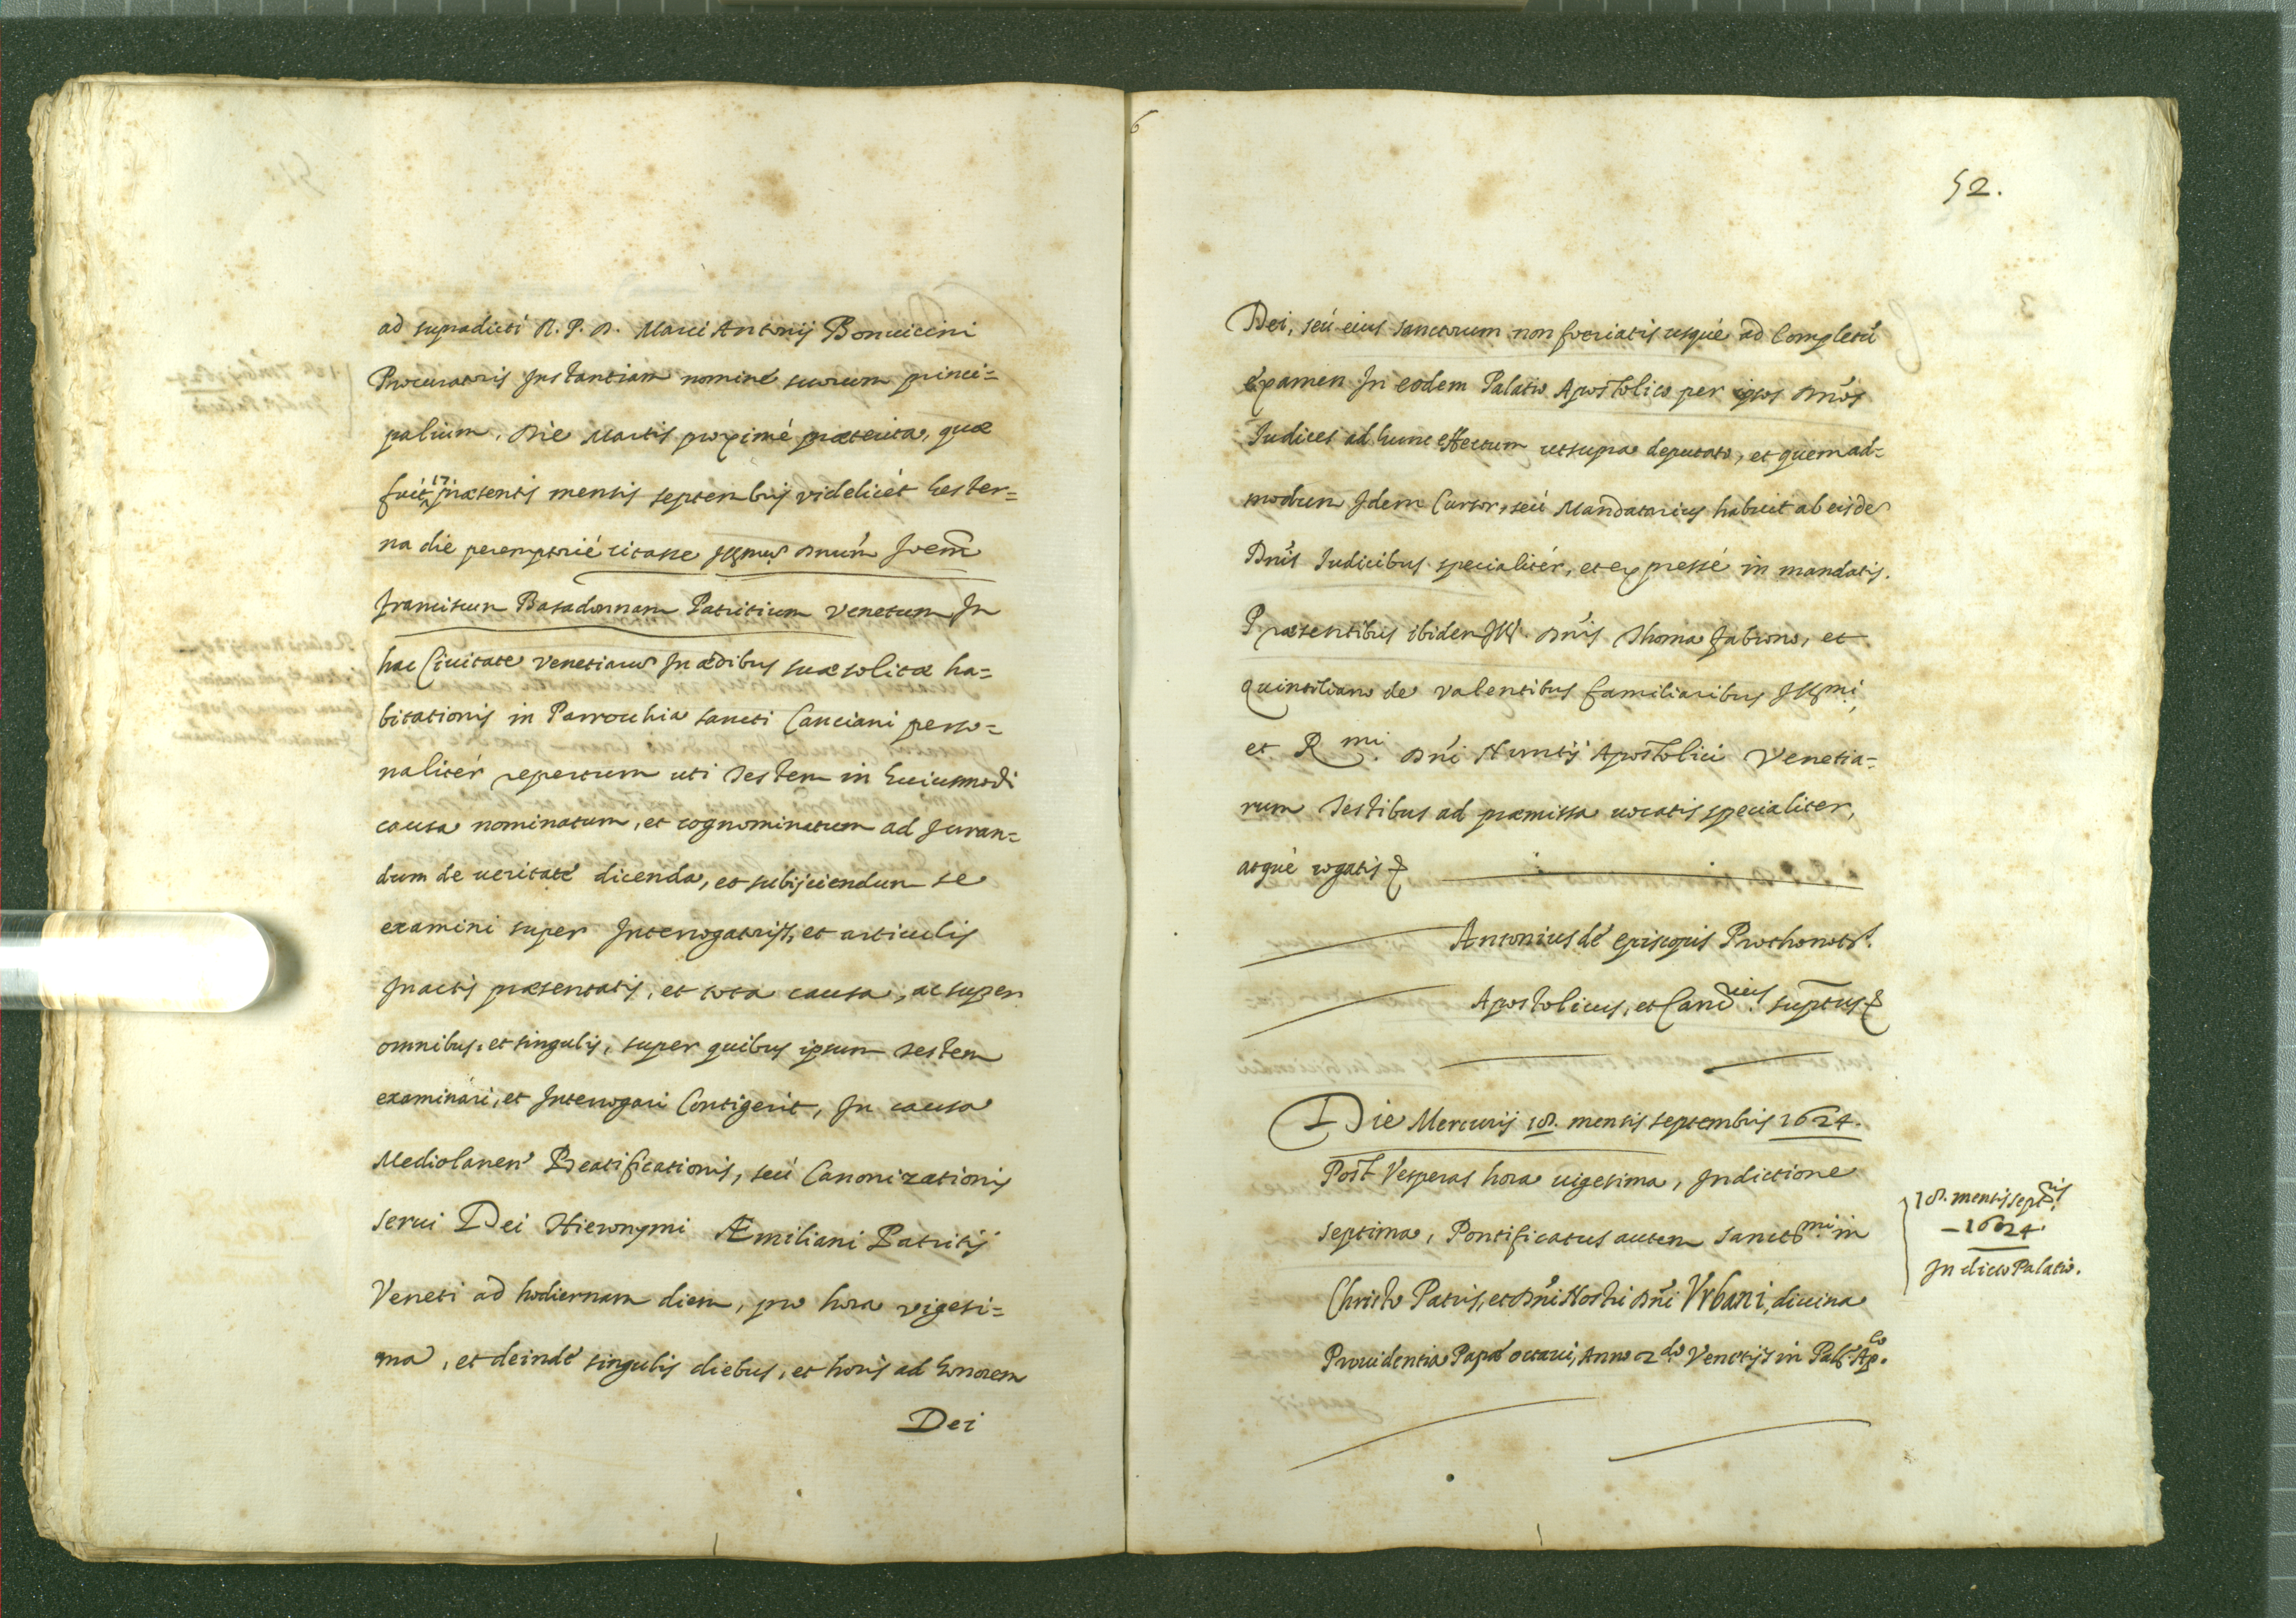 ad supradicti R. P. D. Marci Antonij Bonuicini
Procuratoris Instantiam nominé suorum princi=
palium, Die Martis proximé præterita, quæ
fuit 17 præsentis mensis septembris videlicét hester=
na die peremptorié citasse Illmũ Dnum Joem
Franciscum Basadonnam Patritium Venetum In
hac Ciuitate Venetiarũ In ædibus suæ solitæ ha=
bitationis in Parrochia sancti Canciani perso=
nalitér repertum uti Testem in huiusmodi
causa nominatum, et cognominatum ad Juran=
dum de ueritaté dicenda, et subijciendum se
examini super Interrogatorijs, et articulis
In actis præsentatis, et tota causa, ac super
omnibus, et singulis, super quibus ipsum Testem
examinari, et Interrogari Contigerit, In causa
Mediolanen' Beatificationis, seú Canonizationis
serui Dei Hieronymi Æmiliani Patritij
Veneti ad hodiernam diem, pro hora vigesi=
ma, et deindé singulis diebus, et horis ad honorem
Dei
6
52.
Dei, seú eius sanctorum non foeriatis usqué ad Completũ
éxamen In eodem Palatio Apostolico per ipsos Dnos
Iudices ad hunc effectum ut supra deputato, et quemad=
modum Idem Cursor, seú Mandatarius habuit ab eisdẽ
Dnis Iudicibus specialitér, et expressé in mandatis.
Præsentibus ibidem Ill. Dnis Thoma Fabrono, et
Quintiliano de Valentibus familiaribus Illmi,
et Rmi. Dni Nuntij Apostolici Venetia=
rum Testibus ad præmissa uocatis specialiter,
atqué rogatis &
Antonius dé Episcopis Prothonots.
Apostolicus, et Cancrius suprtus &
Die Mercurij 18. mensis septembris 1624.
Post Vesperas hora uigesima, Indictione
septima, Pontificatus autem sanctmi. in
Christo Patris, et Dni Nostri Dni Vrbani, diuina
Prouidentia Papæ octaui, Anno 2do Venetijs in Palo. Apco.
18. mensis septbris
1624.
In dicto Palatio.